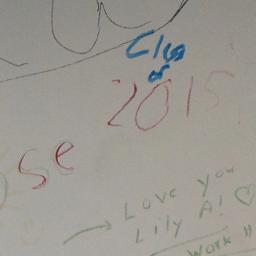 Class
of
2015
se
Love you
Lily A! ♡
Work !!